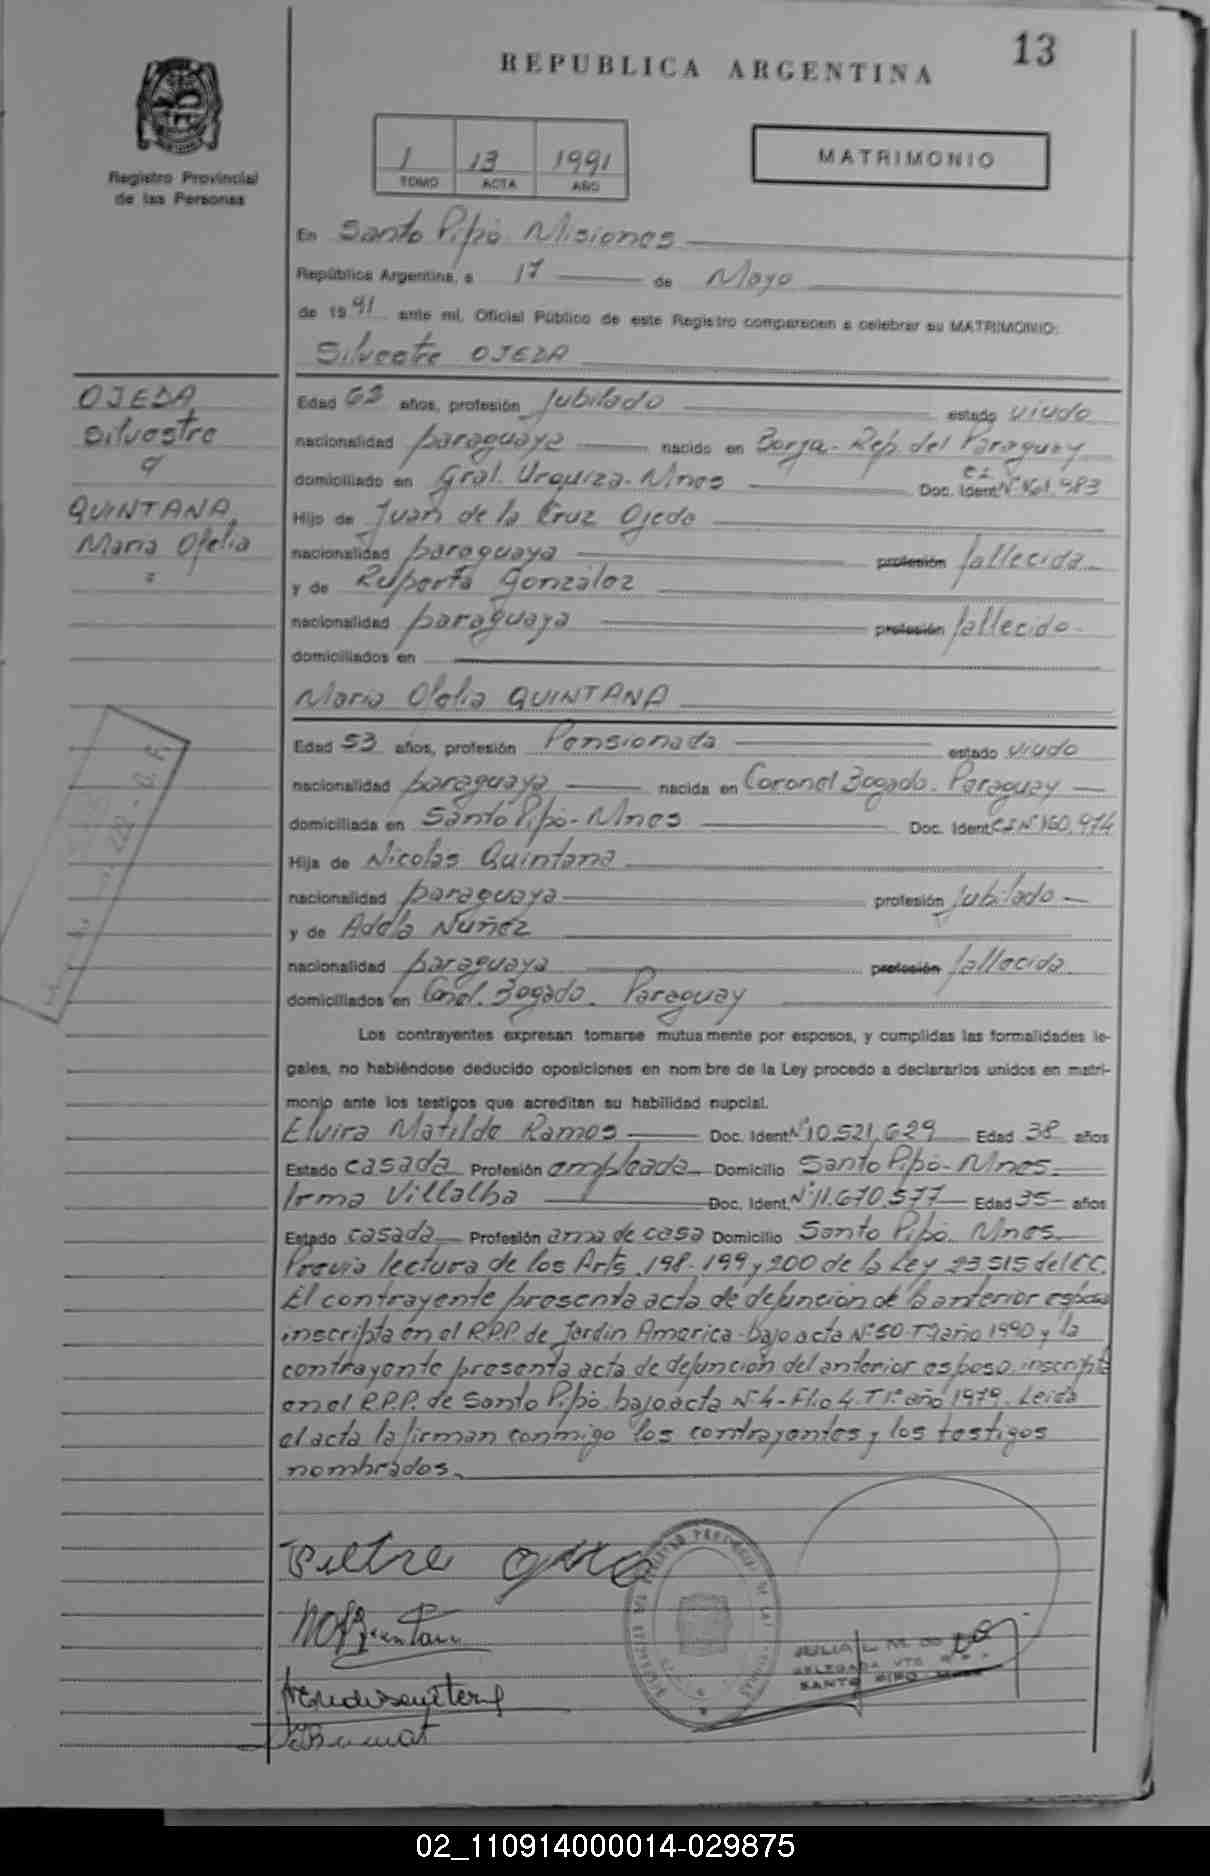 13
REPUBLICA ARGENTINA
1 13 1991
TOMO ACTA AÑO
MATRIMONIO
Registro Provincial
de las Personas
En Santo Pipó Misiones
República Argentina, a 17 de Mayo
de 1991 ante mí, Oficial Público de este Registro comparecen a celebrar su MATRIMONIO:
Silvestre OJEDA
OJEDA
Silvestre
q
QUINTANA,
Maria Ofelia
Edad 62 años, profesión Jubilado estado viudo
nacionalidad paraguaya nacido en Borja - Rep. del Paraguay
domiciliado en Gral. Urquiza - Mnes Doc. Ident. C.I. Nº 161.983
Hijo de Juan de la Cruz Ojeda
nacionalidad paraguaya profesión fallecida
y de Ruperta González
nacionalidad paraguaya profesión fallecido
domiciliados en
Maria Ofelia QUINTANA
Edad 53 años, profesión Pensionada estado viudo
nacionalidad paraguaya nacida en Coronel Bogado. Paraguay
domiciliada en Santo Pipó - Mnes Doc. Ident. C.I Nº 160.974
Hija de Nicolas Quintana
nacionalidad paraguaya profesión Jubilado
y de Adela Nuñez
nacionalidad paraguaya profesión fallecida
domiciliados en Conel. Bogado. Paraguay
Los contrayentes expresan tomarse mutuamente por esposos, y cumplidas las formalidades le-
gales, no habiéndose deducido oposiciones en nombre de la Ley procedo a declararlos unidos en matri-
monio ante los testigos que acreditan su habilidad nupcial.
Elvira Matilde Ramos Doc. Ident. Nº 10.521.629 Edad 38 años
Estado casada Profesión empleada Domicilio Santo Pipó - Mnes.
Irma Villalba Doc. Ident. Nº 11.670.577 Edad 35 años
Estado casada Profesión ama de casa Domicilio Santo Pipó Mnes.
Previa lectura de los Arts. 198 - 199 y 200 de la Ley 23515 del C.C.
El contrayente presenta acta de defunción de la anterior esposa
inscripta en el R.P.P. de Jardin America - bajo acta Nº 50 - año 1990 y la
contrayente presenta acta de defunción del anterior esposo inscripta
en el R.P.P. de Santo Pipó bajo acta Nº 4 - Flio 4. T1º año 1979. Leida
el acta la firman conmigo los contrayentes y los testigos
nombrados.
JULIA L. M.
DELEGADA
SANTO PIPO
02_110914000014-029875